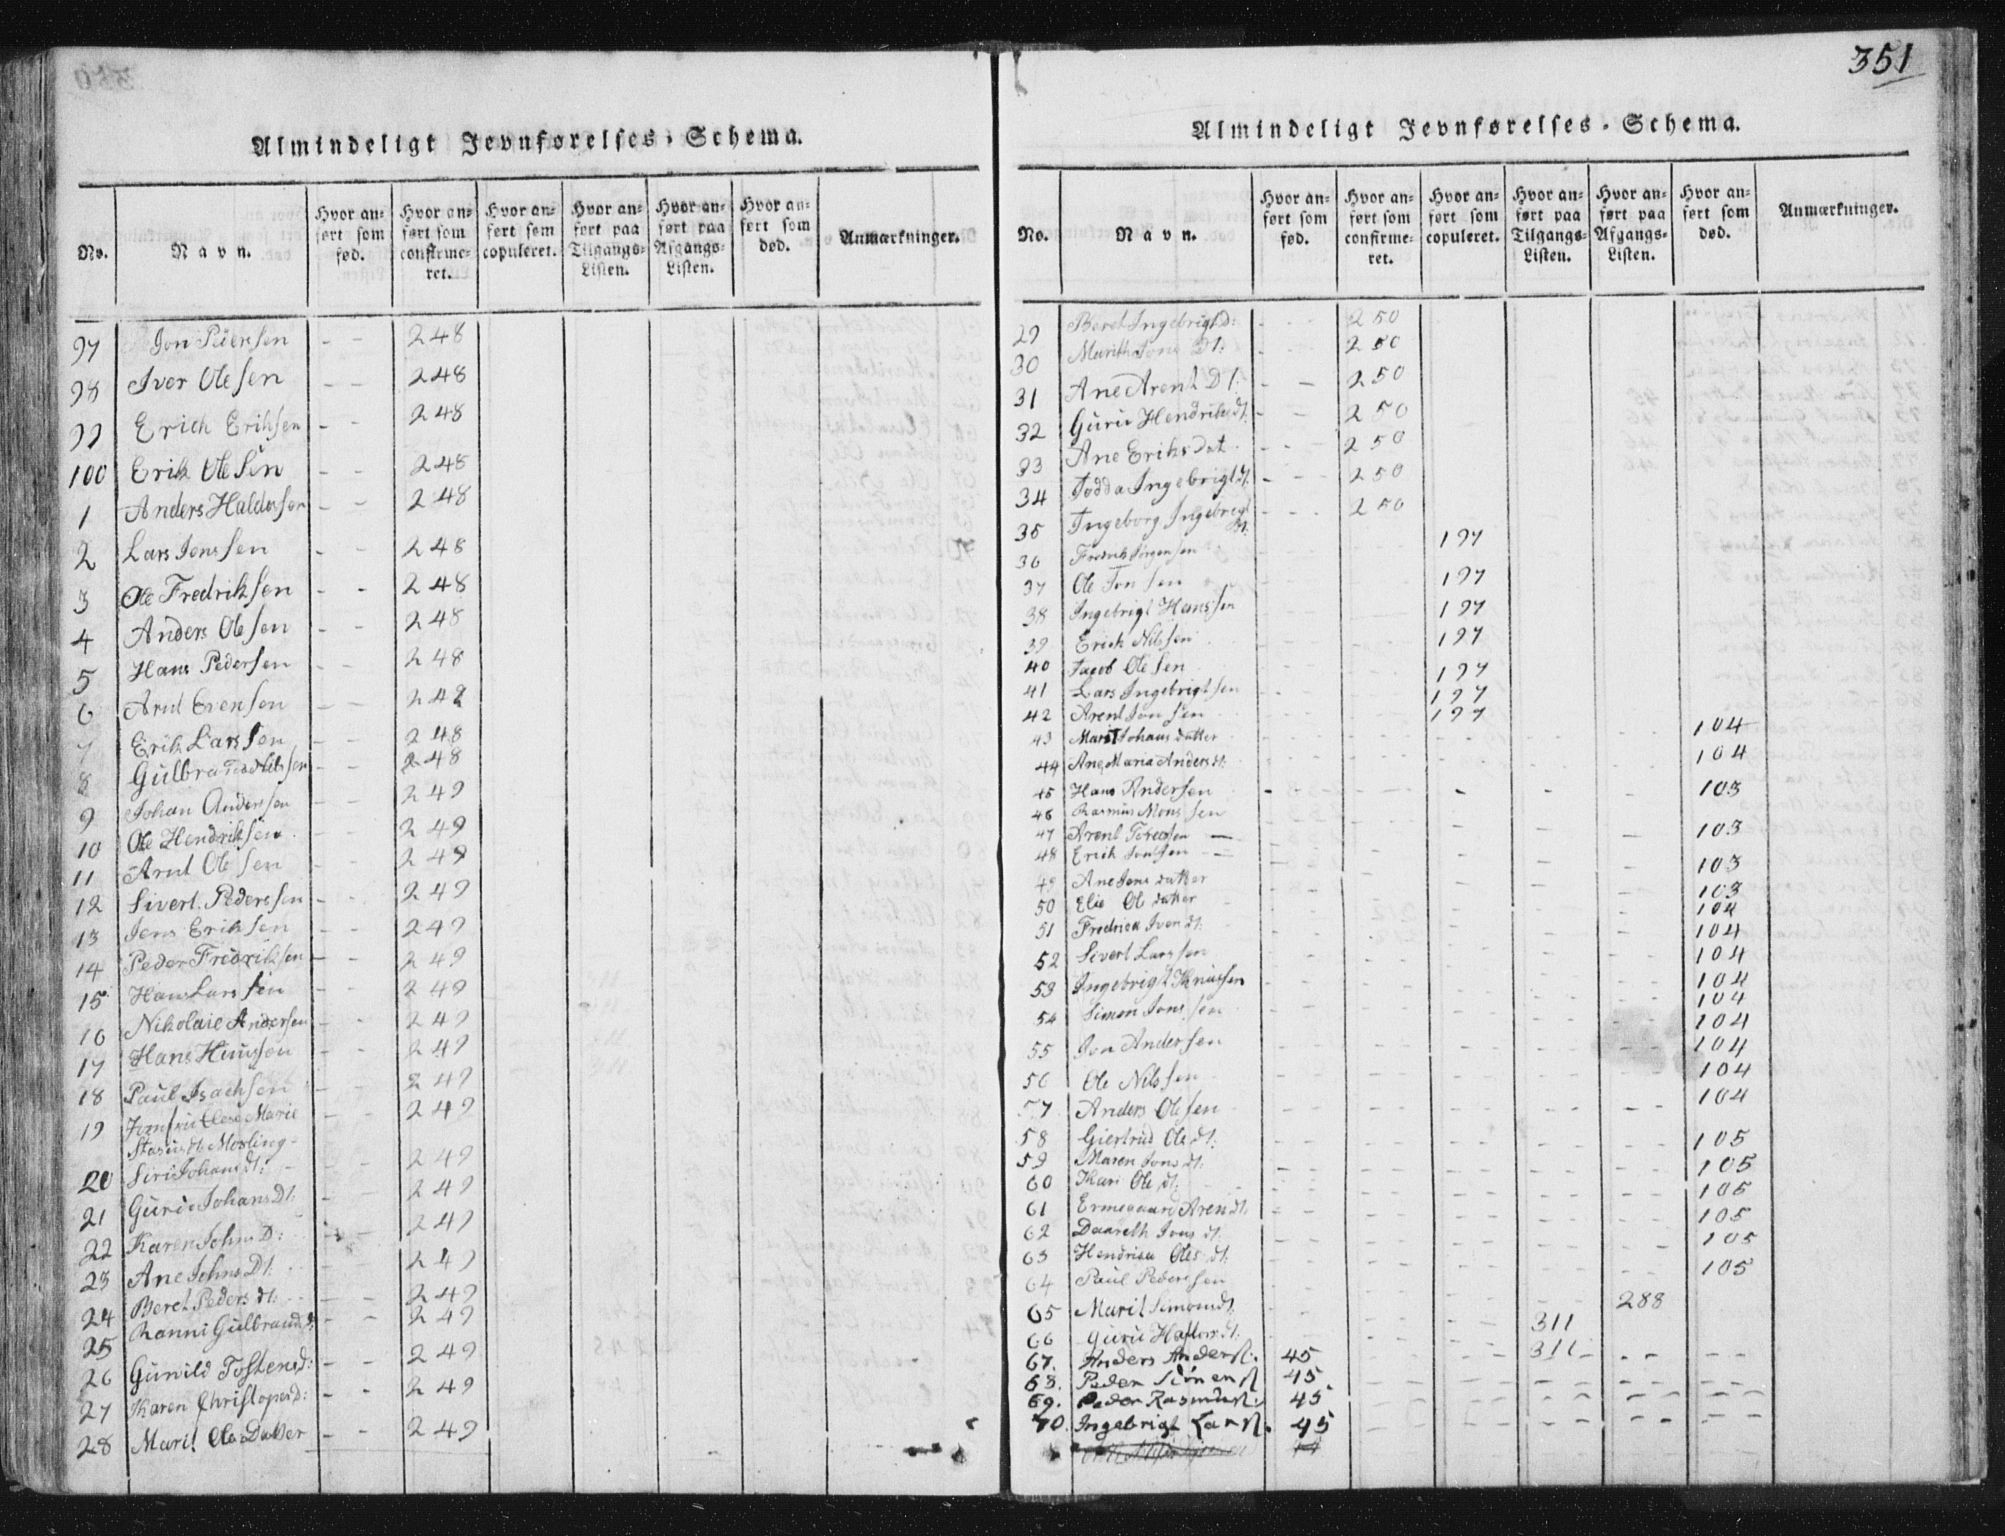 351
Almindeligt Jevnførelses-Schema.
No. Navn. Hvor anført som fød. Hvor anført som confirmeret. Hvor anført som copuleret. Hvor anført paa Tilgangs-Listen. Hvor anført paa Afgangs-Listen. Hvor anført som død. Anmærkninger.
97 Jon Pedersen - - 248
98 Iver Olesen - - 248
99 Erich Eriksen - - 248
100 Erik Olesen - - 248
1 Anders Haldorsen - - 248
2 Lars Jonssen - - 248
3 Ole Fredriksen - - 248
4 Anders Olesen - - 248
5 Hans Pedersen - - 248
6 Arnt Evensen - - 248
7 Erik Larssen - - 248
8 Gulbra - - 248
9 Johan Anderssen - - 249
10 Ole Hendriksen - - 249
11 Arnt Olesen - - 249
12 Sivert Pederssen - - 249
13 Jens Eriksen - - 249
14 Peder Fridriksen - - 249
15 Hans Larssen - - 249
16 Nikolaie Andersen - - 249
17 Hans - - 249
18 Paul Isachsen - - 249
19 Jomfru Marie - - 249
Mosling -
20 Siri Johansdt: - - 249
21 Guru Johansdt. - - 249
22 Karen Johnsd: - - 249
23 Ane Johnsdt. - - 249
24 Beret Pedersdt. - - 249
25 Ranni Gulbrandsd. - - 249
26 Gunild Tostensd: - - 249
27 Karen Christopersd: - - 249
28 Marit Olesdatter - - 249
Almindeligt Jevnførelses-Schema.
No. Navn. Hvor anført som fød. Hvor anført som confirmeret. Hvor anført som copuleret. Hvor anført paa Tilgangs-Listen. Hvor anført paa Afgangs-Listen. Hvor anført som død. Anmærkninger.
29 Beret Ingebrigtd: - - 250
30 Marith Jons Dt: - - 250
31 Ane Arent Dt: - - 250
32 Guru Hendriksdt. - - 250
33 Ane Eriksdat - - 250
34 Todda Ingebrigtdt. - - 250
35 Ingeborg Ingebrigt dt. - - 250
36 Fredrik Jørgensen 197
37 Ole Jonsen 197
38 Ingebrigt Hanssen 197
39 Erich Nilssen 197
40 Jacob Olesen 197
41 Lars Ingebrigtsen 197
42 Arent Jonsen 197
43 Marit Johansdatter 104
44 Ane Maria Andersdt. 104
45 Hans Andersen 103
46 Rasmus Monssen
47 Arent 103
48 Erich Jonssen 103
49 Ane Jensdatter 103
50 Elie Olsdatter 104
51 Fredrica Iversdt. 104
52 Sivert Larssen 104
53 Ingebrigt Knussen 104
54 Simon Jonssen 104
55 Jon Andersen 104
56 Ole Nilssen 104
57 Anders Olesen 104
58 Giertrud Olsdt: 104
59 Maren Jonsdt. 105
60 Kari Olsdt. 105
61 Ermegaard Arendt. 105
62 Daareth Jonsdt. 105
63 Hendrica Olesdt. 105
64 Paul Pederssen 105
65 Marit Simonsdt. 288
66 Guru 311
67. Anders Anders. 45 311
68. Peder 45
69. Peder Rasmus. 45
70. Ingebrigt Lars. 45